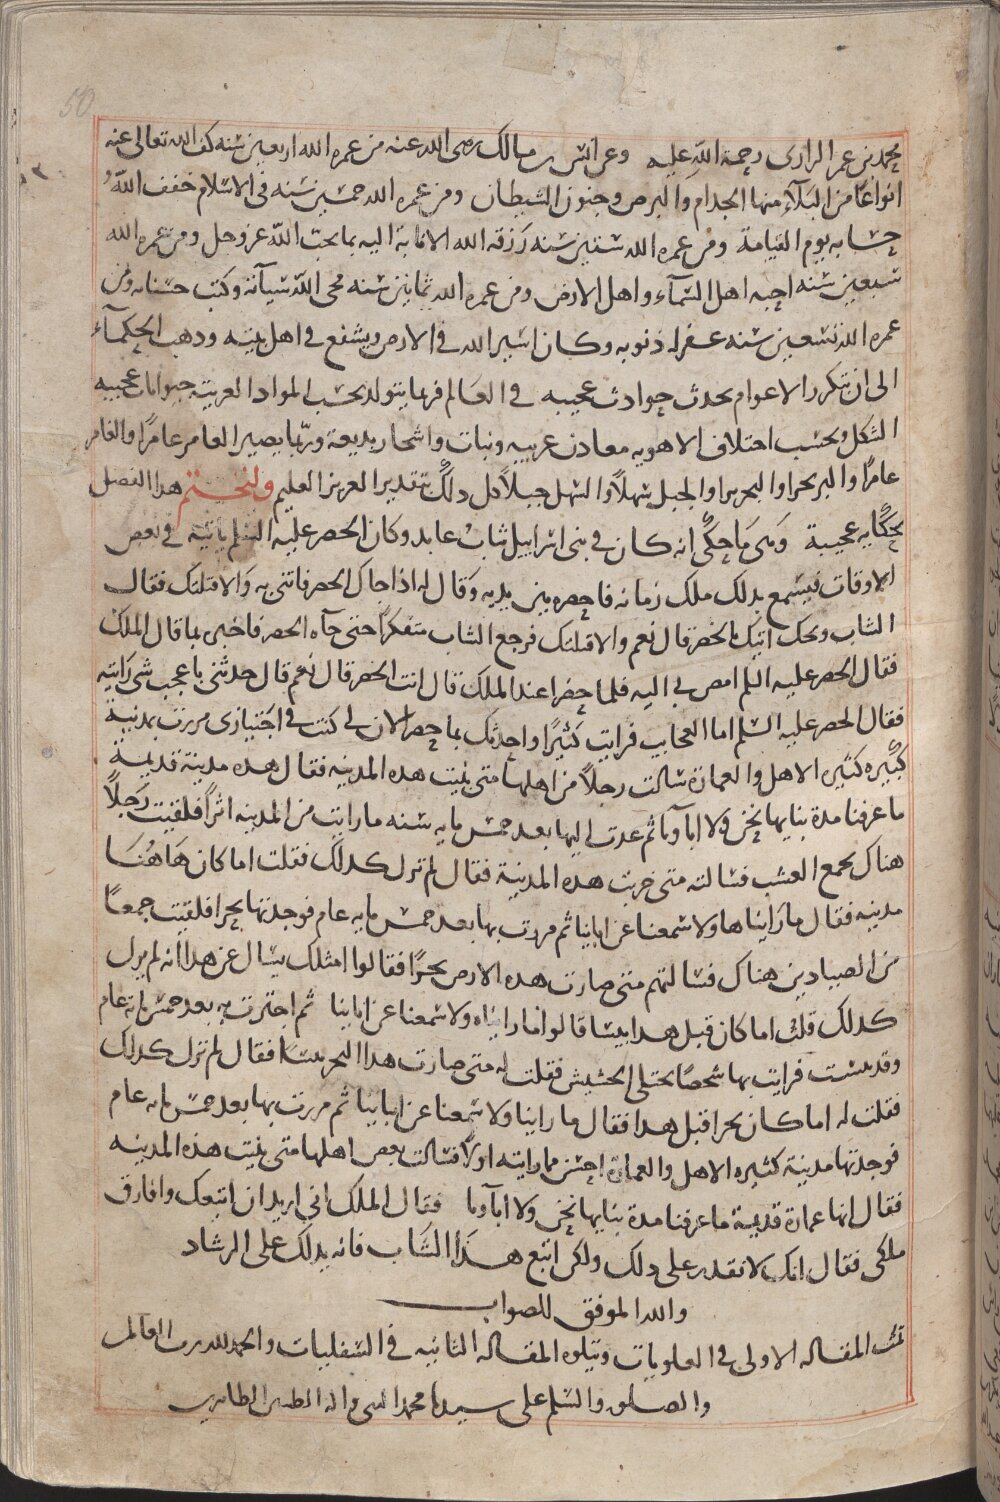 50
محمد بن عمر الرازى رحمة الله عليه وعن انس بن مالك رضى الله عنه من عمره الله اربعين سنه كف الله تعالى عنه
انواعا من البلآء منها الجدام والبرص وجنون الشيطان ومن عمره الله خمسين سنه فى الاسلام خفف الله
حسابه يوم القيامة ومن عمره الله ستين سنه رزقه الله الانابة اليه بما يحب الله عز وجل ومن عمره الله
سبعين سنه احبه اهل السمآء واهل الارض ومن عمره الله ثمانين سنه محى الله سيآته وكتب حسناته ومن
عمره الله تسعين سنه غفر له ذنوبه وكان اسير الله فى الارض ويشفع فى اهل بيته وذهب الحكمآء
الى ان بتكرر الاعوام يحدث حوادث عجيبه فى العالم فربما يتولد بحسب المواد الغريبة حيوانات عجيبه
الشكل وبحسب اختلاف الاهويه معادن غريبه ونبات واشجار بديعة وربما يصير العامر غامرا والغامر
عامرا والبر بحرا والبحر برا والجبل سهلا والسهل جبلا كل ذلك بتقدير العزيز العليم ولنختتم هذا الفصل
بحكايه عجيبة وهى ما حكى انه كان فى بنى اسرائيل شاب عابد وكان الخضر عليه السلم ياتيه فى بعض
الاوقات فيسمع بذلك ملك زمانه فاحضره بين يديه وقال له اذا جاك الخضر فاتنى به والا قتلتك فقال
الشاب ويحك اتيك بالخضر قال نعم والا قتلتك فرجع الشاب متفكرا حتى جآه الخضر فاخبره بما قال الملك
فقال الخضر عليه السلم امض بى اليه فلما حضرا عند الملك قال انت الخضر قال نعم قال حدثنى باعجب شى رايته
فقال الخضر عليه السلم اما العجايب فرايت كثيرا واحدثك بما حضر الان لى كنت فى اجتيازى مررت بمدينة
كبيره كثيره الاهل والعمارة سالت رجلا من اهلها متى بنيت هذه المدينه فقال هذه مدينة قديمة
ما عرفنا مدة بنايها نحن ولا اباونا ثم عدت اليها بعد خمس مايه سنه ما رايت من المدينه اثرا فلقيت رجلا
هناك يجمع العشب فسالته متى خربت هذه المدينة فقال لم تزل كذلك فقلت اما كان هاهنا
مدينه فقال ما رايناها ولا سمعنا عن ابائنا ثم مررت بها بعد خمس مايه عام فوجدتها بحرا فلقيت جمعا
من الصيادين هناك فسالتهم متى صارت هذه الارض بحرا فقالوا امثلك يسال عن هذا انه لم يزل
كذلك قلت اما كان قبل هذا يبسا قالوا ما رايناه ولا سمعنا عن اباينا ثم اجتزت به بعد خمس مائة عام
وقد يبست فرايت بها شخصا يختلى الحشيش فقلت له متى صارت هذا البحر يبسا فقال لم تزل كذلك
فقلت له اما كان بحرا قبل هذا فقال ما راينا ولا سمعنا عن اباينا ثم مررت بها بعد خمس مايه عام
فوجدتها مدينة كثيره الاهل والعمارة احسن مما رايته اولا فسالت بعض اهلها متى بنيت هذه المدينه
فقال انها عمارة قديمة ما عرفنا مدة بنايها نحن ولا اباونا فقال الملك انى اريد ان اتبعك وافارق
ملكى فقال انك لا تقدر على ذلك ولكن اتبع هذا الشاب فانه يدلك على الرشاد
والله الموفق للصواب
تمت المقاله الاولى فى العلويات ويتلوه المقاله الثانيه فى السفليات والحمد لله رب العالمين
والصلوه والسلم على سيدنا محمد النبى واله الطيبين الطاهرين